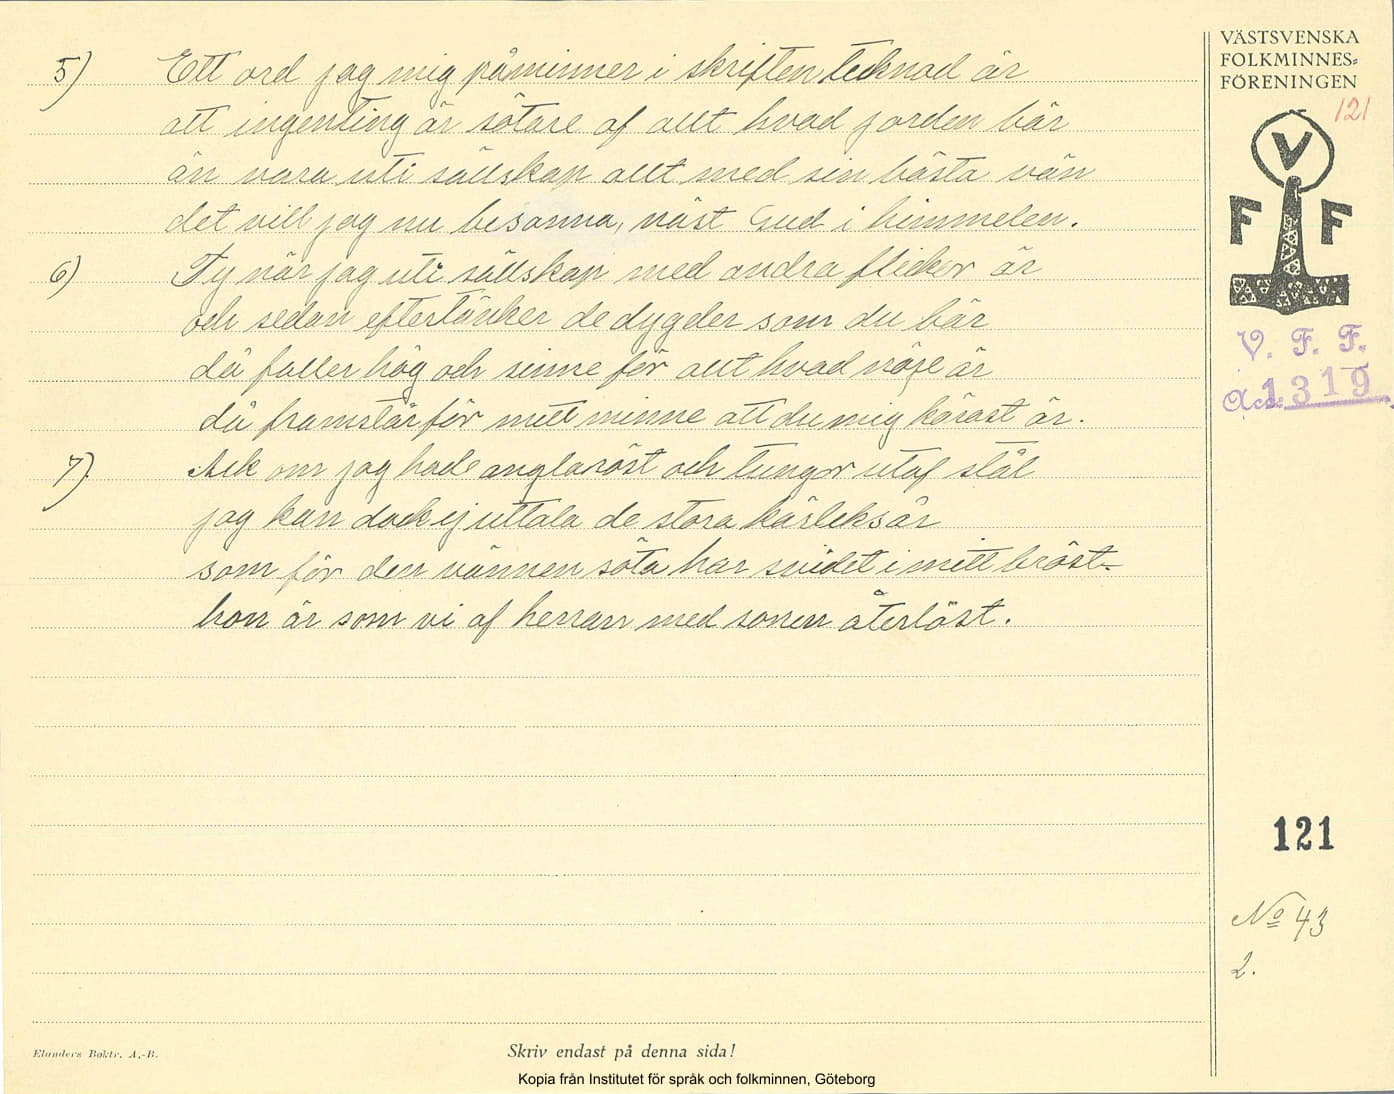 5) Ett ord jag mig påminner i skriften tecknad är
att ingenting är sötare af allt hvad jorden bär
än vara uti sällskap allt med sin bästa vän
det vill jag nu besanna, näst Gud i himmelen.
6) Ty när jag uti sällskap med andra flickor är
och sedan eftertänker de dygder som du bär
då faller håg och sinne för allt hvad nöje är
då framstår för mitt minne att du mig kärast är.
7) Ack om jag hade anglaröst och tungor utaf stål
jag kan dock ej uttala de stora kärleksår
som för den vännen söta har svidet i mitt bröst
hon är som vi af herran med sonen återlöst.
VÄSTSVENSKA
FOLKMINNES-
FÖRENINGEN
121
V
F F
V. F. F.
Acc. 1319
121
No 43
2.
Elanders Boktr. A.-B.
Skriv endast på denna sida!
Kopia från Institutet för språk och folkminnen, Göteborg